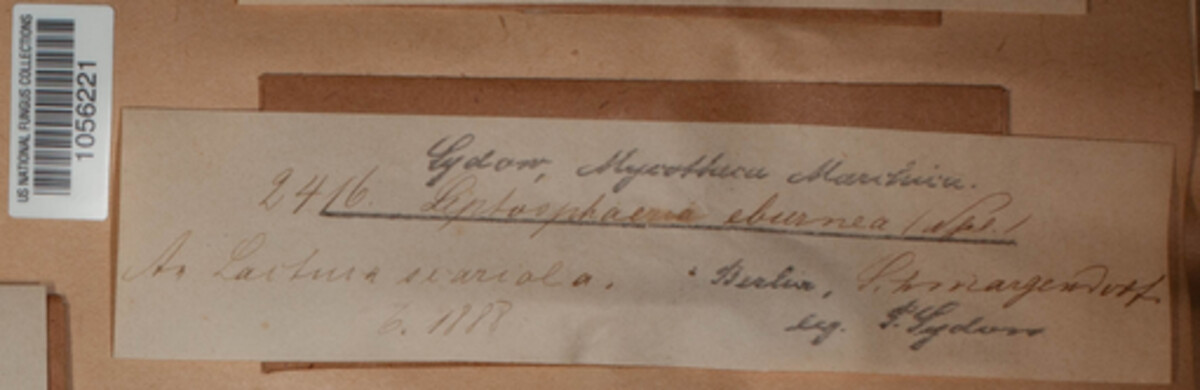 US NATIONAL FUNGUS COLLECTIONS
1056221
Sydow, Mycotheca Marchica.
2416. Leptosphaeria eburnea
An Lactuca scariola. Berlin, Schmargendorf
6. 1888 leg. P. Sydow